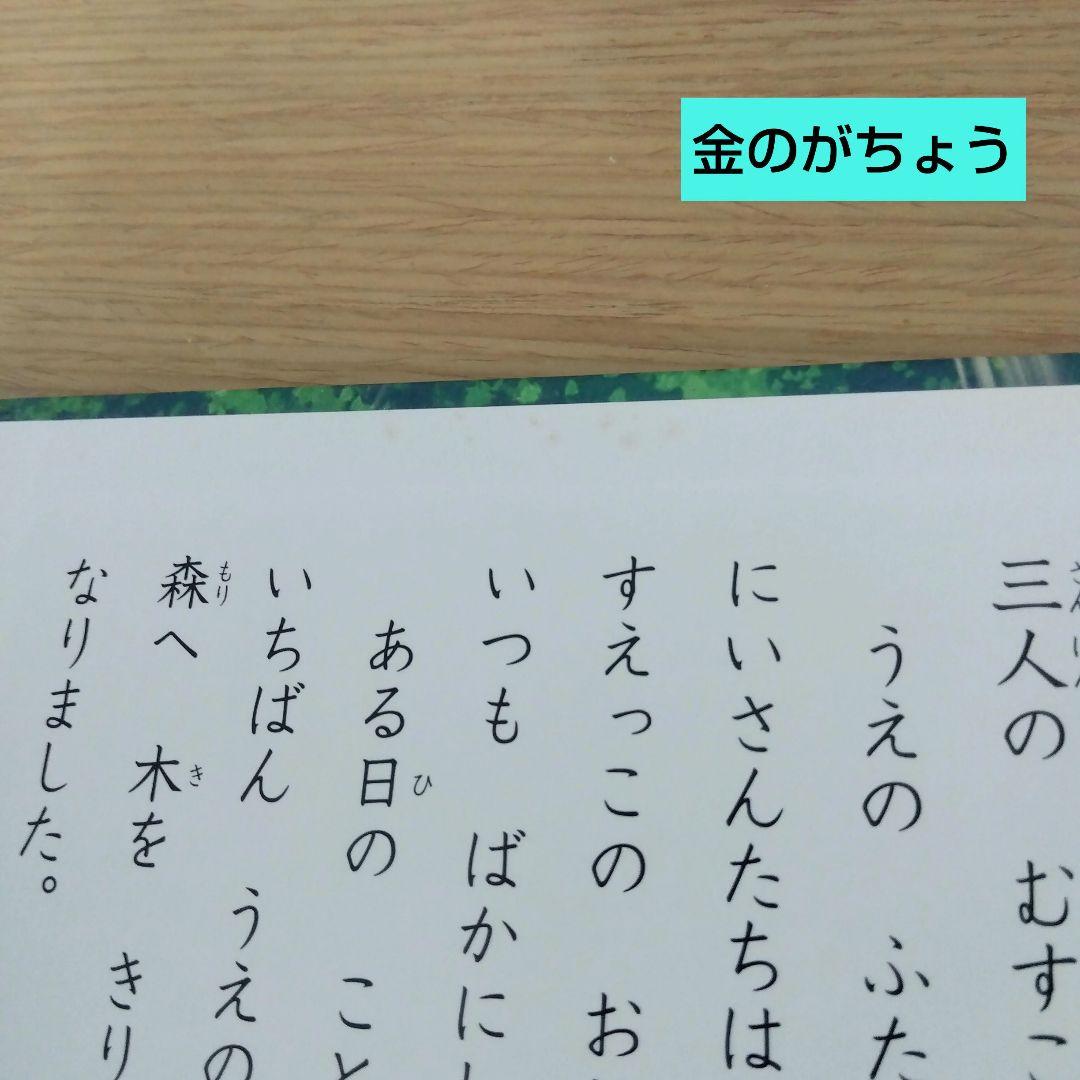 金のがちょう
三人の むすこ
うえの ふた
にいさんたちは
すえっこの お
いつも ばかにし
ある日の こと
いちばん うえの
森へ 木を きり
なりました。